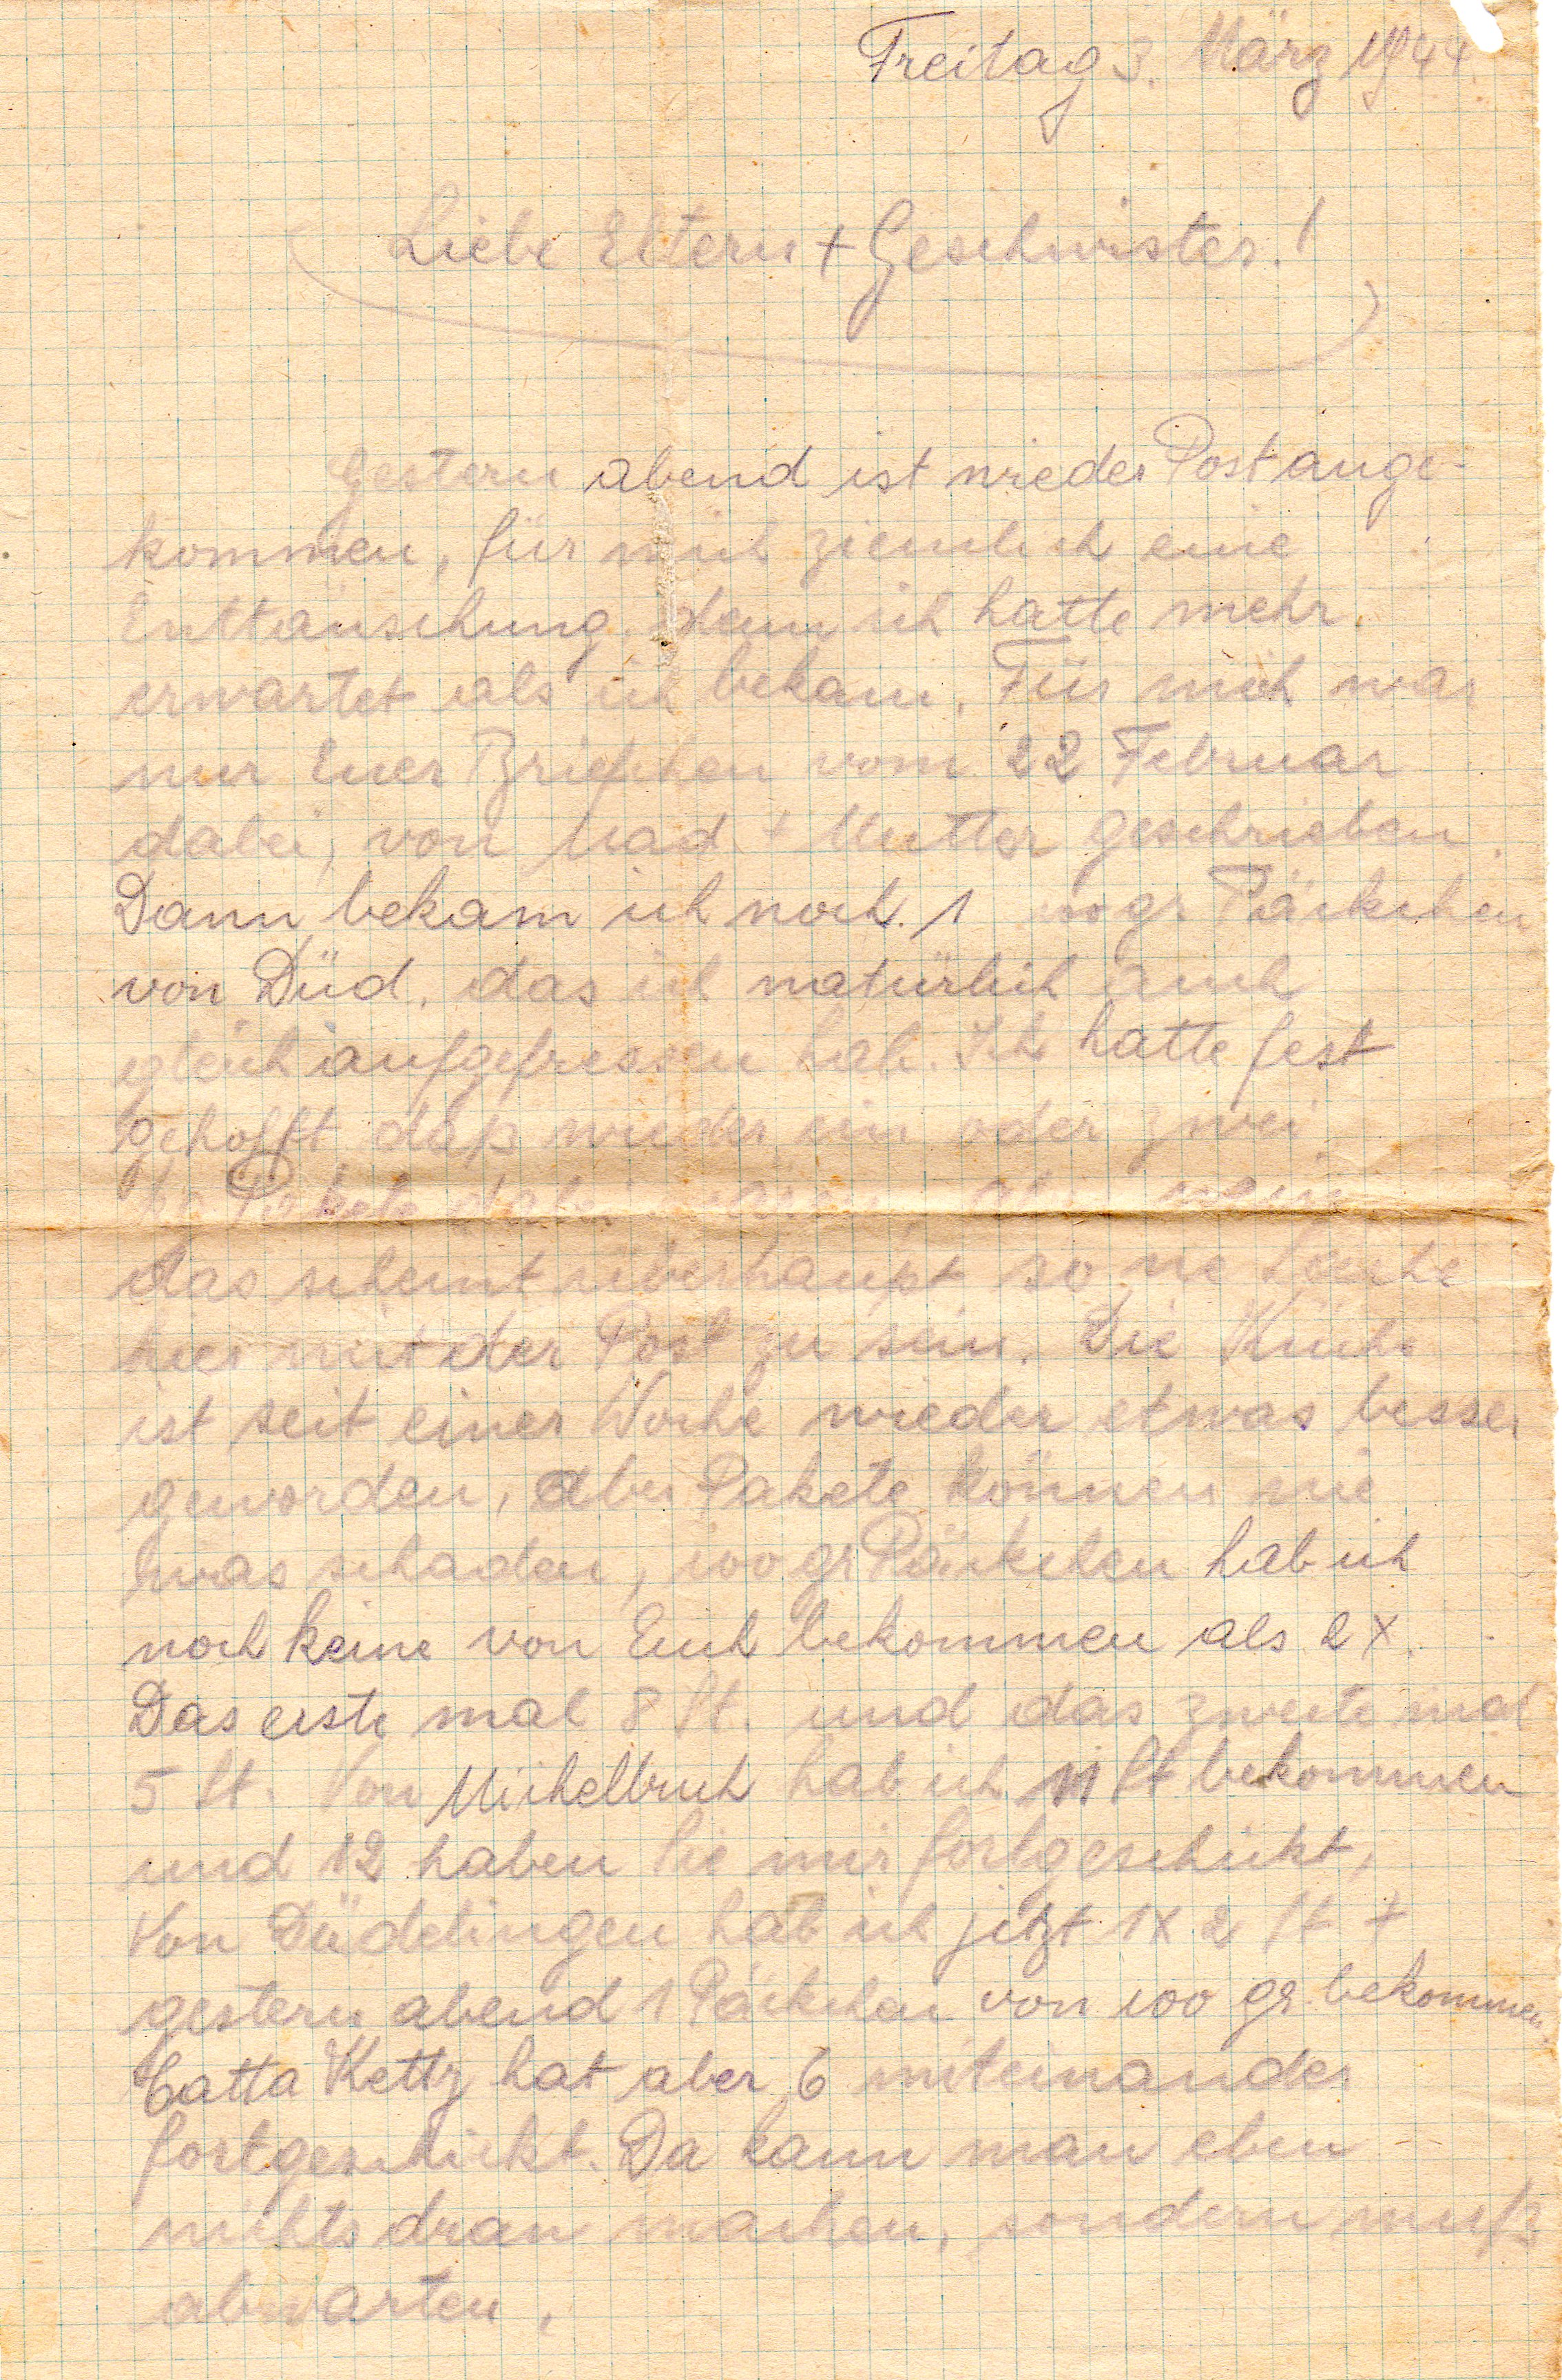 Freitag 3. März 1944
Liebe Eltern + Geschwister!
Gestern abend ist wieder Post ange-
kommen, für mich ziemlich eine
Enttäuschung, denn ich hatte mehr
erwartet als ich bekam. Für mich war
nur Euer Briefchen vom 22 Februar
dabei, von Mad. + Mutter geschrieben.
Dann bekam ich noch 1 100 gr. Päckchen
von Düd. das ich natürlich auch
gleich aufgefressen hab. Ich hatte fest
gehofft daß wieder ein oder zwei
Pakete dabei wären, aber nein
das scheint überhaupt so ne Sache
hier mit der Post zu sein. Die Küche
ist seit einer Woche wieder etwas besser
geworden, aber Pakete können nie
was schaden, 100 gr Päckchen hab ich
noch keine von Euch bekommen als 2 x.
Das erste mal 8 St. und das zweite mal
5 St. Von Michelbuch hab ich 11 St bekommen
und 12 haben Sie mir fortgeschickt,
Von Düdelingen hab ich jetzt 1x 2 St +
gestern abend 1 Päckchen von 100 gr. bekommen
Catta Ketty hat aber 6 miteinander
fortgeschickt. Da kann man eben
nichts dran machen, sondern muß
abwarten,